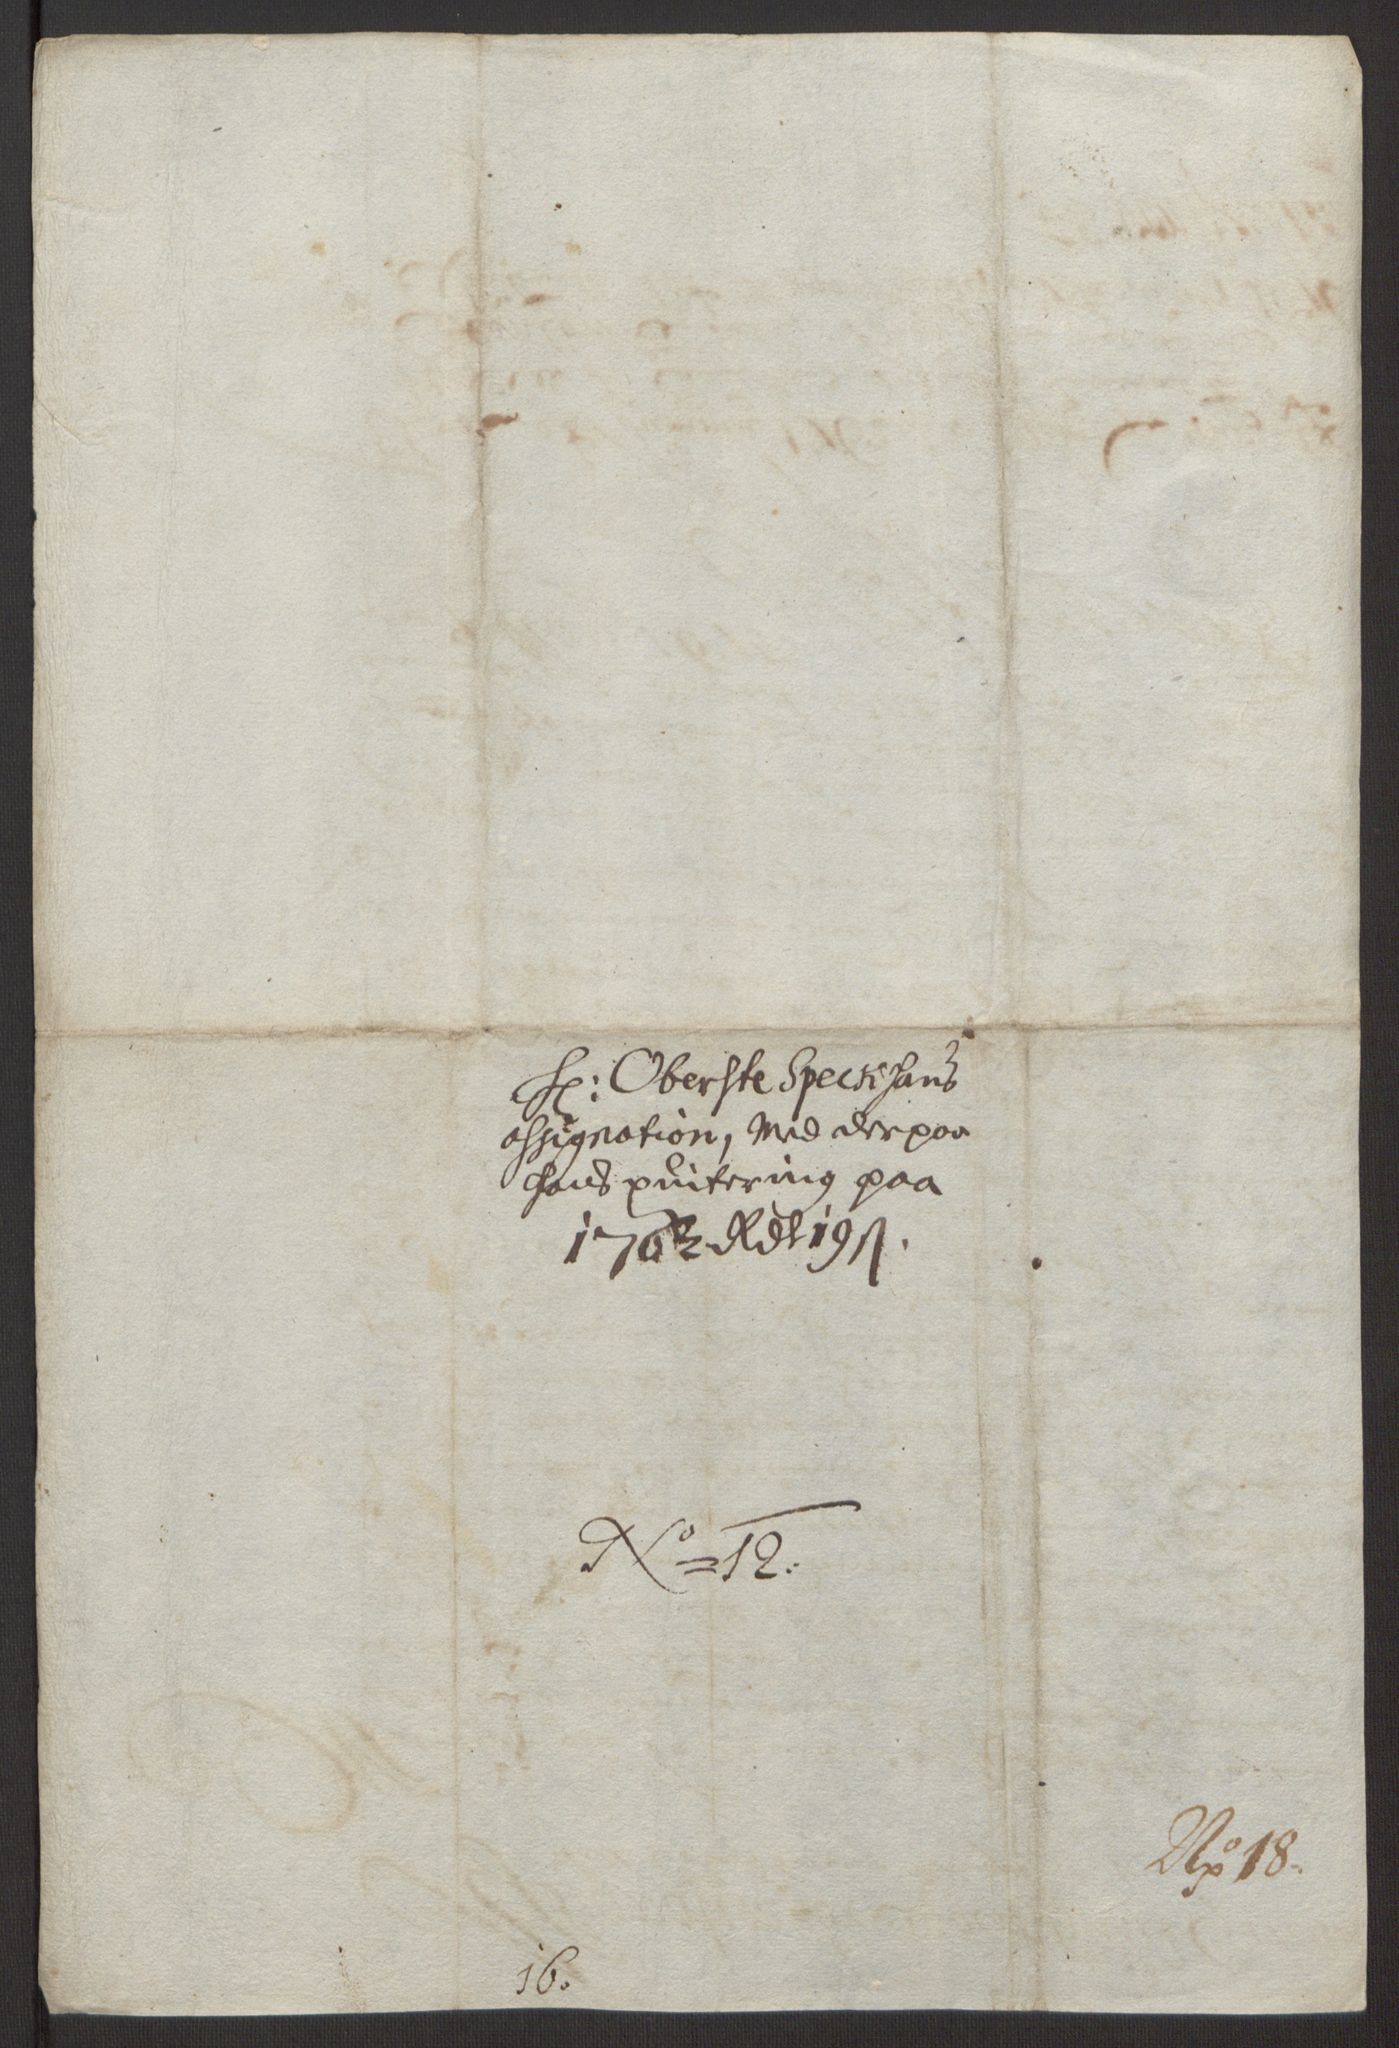 Hr: Oberste Speckhans
assignation, Med derpaa
hans qvitering paa
Rdl 19 ß.
No = 12.
No 18.
16.